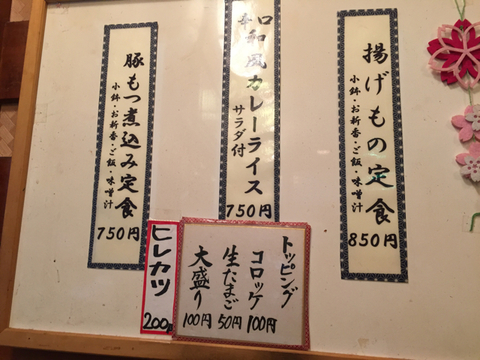 揚げもの定食
小鉢・お新香・ご飯・味噌汁
850円
辛口
和風カレーライス
サラダ付
750円
豚もつ煮込み定食
小鉢・お新香・ご飯・味噌汁
750円
トッピング
コロッケ 100円
生たまご 50円
大盛り 100円
ヒレカツ
200円